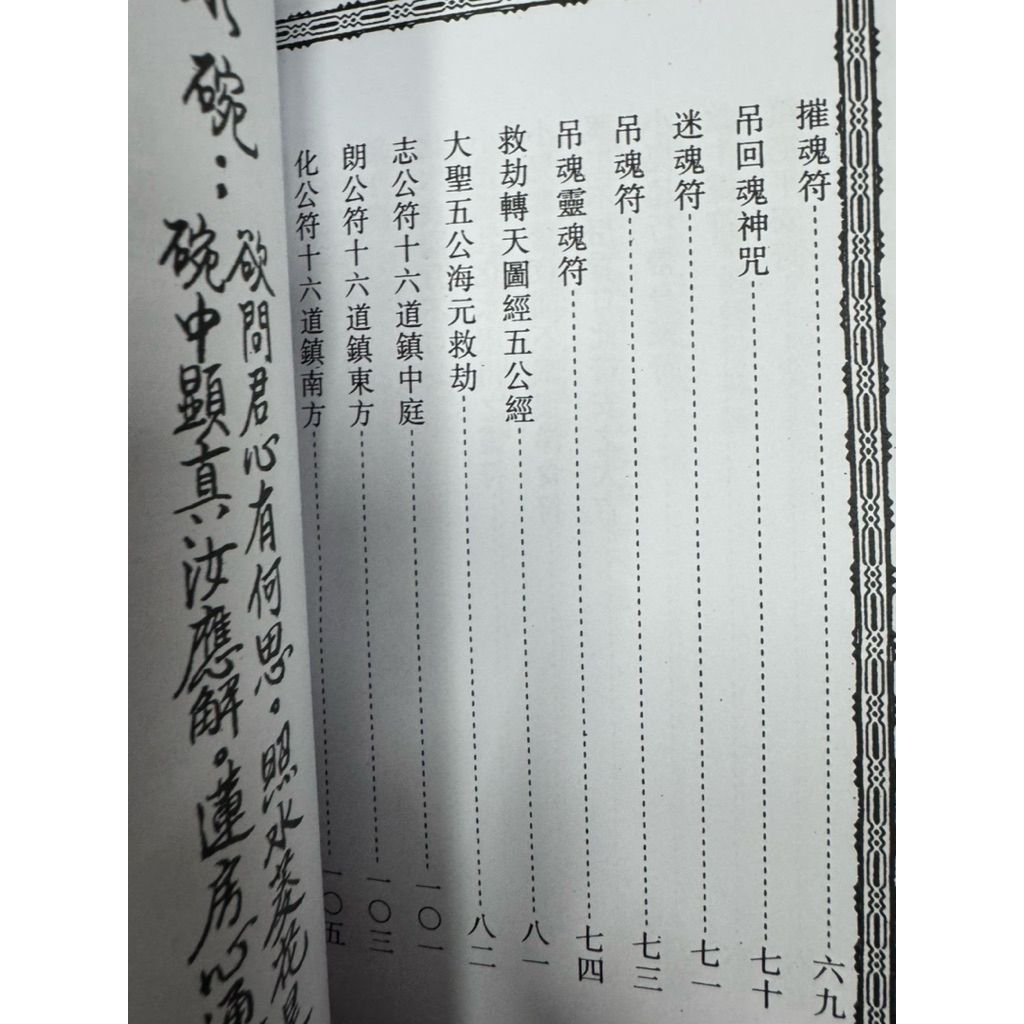 摧魂符……六九
吊回魂神咒……七十
迷魂符……七一
吊魂符……七三
吊魂靈魂符……七四
救劫轉天圖經五公經……八一
大聖五公海元救劫……八二
志公符十六道鎮中庭……一〇一
朗公符十六道鎮東方……一〇三
化公符十六道鎮南方……一〇五
欲問君心有何思。照水菱花
碗：碗中顯真汝應解。蓮房心通